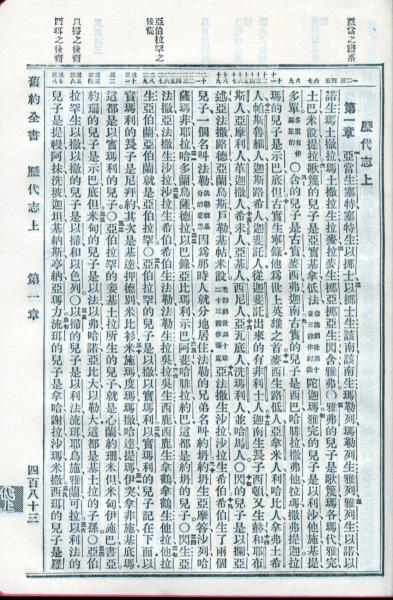 亞當之譜系
亞伯拉罕之
後裔
以掃之後裔
西珥之後裔
歷代志上
第一章 亞當生塞特塞特生以挪士以挪士生該南該南生瑪勒列瑪勒列生雅列雅列生以諾以
諾生瑪土撒拉瑪土撒拉生拉麥拉麥生挪亞挪亞生閃含雅弗○雅弗的兒子是歌篾瑪各瑪代雅完
土巴米設提拉歌篾的兒子是亞實基拿低法陀迦瑪雅完的兒子是以利沙他施基提
多單○含的兒子是古實麥西弗迦南古實的兒子是西巴哈腓拉撒弗他拉瑪撒弗提迦拉
瑪的兒子是示巴底但古實生寧錄他為世上英雄之首麥西生路低人亞拿米人利哈比人拿弗土希
人帕斯魯細人迦斯路希人迦斐託人從迦斐託出來的有非利士人迦南生長子西頓又生赫和耶布
斯人亞摩利人革迦撒人希未人亞基人西尼人亞瓦底人洗瑪利人並哈馬人○閃的兒子是以攔亞
述亞法撒路德亞蘭烏斯戶勒基帖米設亞法撒生沙拉沙拉生希伯希伯生了兩個
兒子一個名叫法勒因為那時人就分地居住法勒的兄弟名叫約坍約坍生亞摩答沙列哈
薩瑪非耶拉哈多蘭烏薩德拉以巴錄亞比瑪利示巴阿斐哈腓拉約巴這都是約坍的兒子○閃生亞
法撒亞法撒生沙拉沙拉生希伯希伯生法勒法勒生拉吳拉吳生西鹿西鹿生拿鶴拿鶴生他拉他拉
生亞伯蘭亞伯蘭就是亞伯拉罕○亞伯拉罕的兒子是以撒以實瑪利以實瑪利的兒子記在下面以
實瑪利的長子是尼拜約其次是基達押德別米比衫米施瑪度瑪瑪撒哈達提瑪伊突拿非施基底瑪
這都是以實瑪利的兒子○亞伯拉罕的妾基土拉所生的兒子就是心蘭約珊米但米甸伊施巴書亞
約珊的兒子是示巴底但米甸的兒子是以法以弗哈諾亞比大以勒大這都是基土拉的子孫○亞伯
拉罕生以撒以撒的兒子是以掃和以色列○以掃的兒子是以利法流珥耶烏施雅蘭可拉以利法的
兒子是提幔阿抹洗玻迦坦基納斯亭納亞瑪力流珥的兒子是拿哈謝拉沙瑪米撒西珥的兒子是羅
舊約全書 歷代志上 第一章 四百八十三
代上